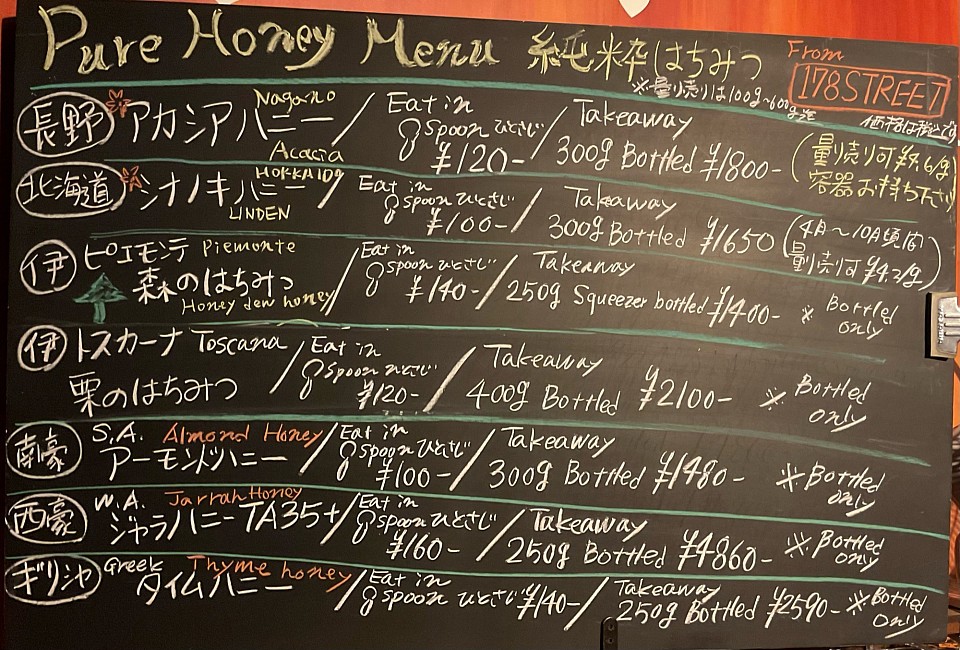 Pure Honey Menu 純粋はちみつ
From
178STREET
※量り売りは100g~600g迄
価格は税込です
長野 アカシアハニー Nagano Acacia / Eat in スプーン Spoon ひとさじ ¥120- / Takeaway 300g Bottled ¥1800- (量り売り可 ¥4.6/g 容器お持ち下さい)
北海道 シナノキハニー HOKKAIDO LINDEN / Eat in Spoon ひとさじ ¥100- / Takeaway 300g Bottled ¥1650 (4月~10月頃 量り売り可 ¥4.2/g)
伊 ピエモンテ Piemonte
森のはちみつ Honey dew honey / Eat in Spoon ひとさじ ¥140- / Takeaway 250g Squeezer bottled ¥1400- ※ Bottled only
伊 トスカーナ Toscana
栗のはちみつ / Eat in Spoon ひとさじ ¥120- / Takeaway 400g Bottled ¥2100- ※ Bottled only
南豪 S.A. Almond Honey
アーモンドハニー / Eat in Spoon ひとさじ ¥100- / Takeaway 300g Bottled ¥1480- ※ Bottled only
西豪 W.A. Jarrah Honey
ジャラハニー TA35+ / Eat in Spoon ひとさじ ¥160- / Takeaway 250g Bottled ¥4860- ※ Bottled only
ギリシャ Greek Thyme honey
タイムハニー / Eat in Spoon ひとさじ ¥140- / Takeaway 250g Bottled ¥2590- ※ Bottled only